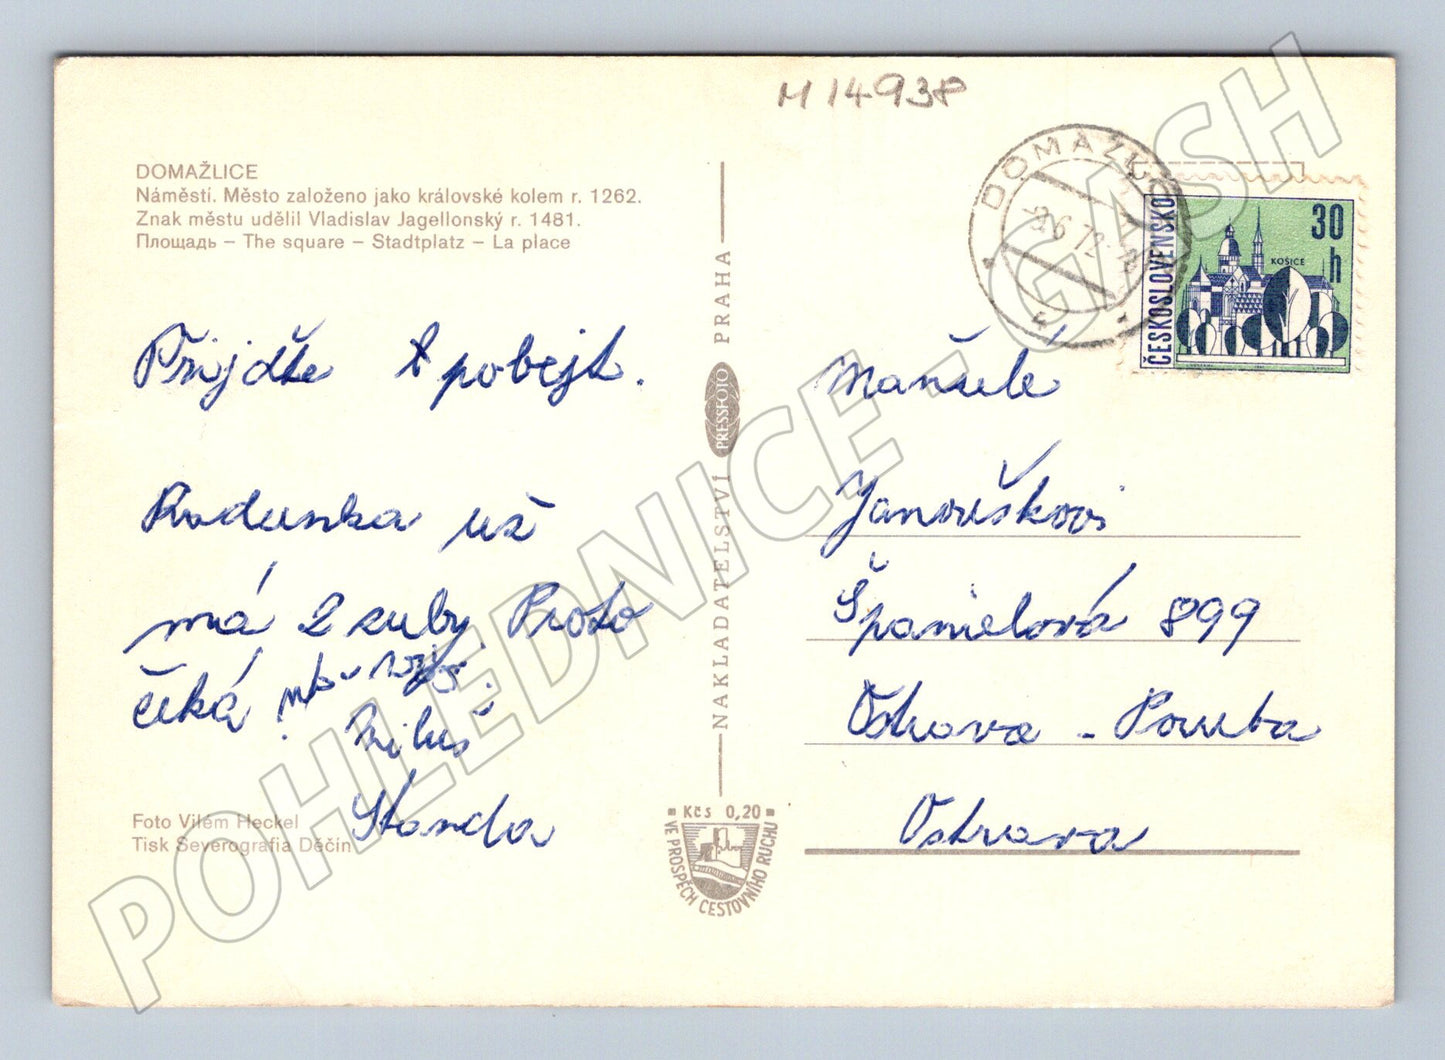 M 14938
DOMAŽLICE
Náměstí. Město založeno jako královské kolem r. 1262.
Znak městu udělil Vladislav Jagellonský r. 1481.
Площадь – The square – Stadtplatz – La place
Přijďte pobejt.
Radunka už
má 2 zuby. Proto
čeká
Standa
Foto Vilém Heckel
Tisk Severografia Děčín
NAKLADATELSTVÍ PRESSFOTO PRAHA
Kčs 0,20
VE PROSPĚCH CESTOVNÍHO RUCHU
DOMAŽLICE
ČESKOSLOVENSKO
30 h
KOŠICE
Manželé
Janouškovi
Španielová 899
Ostrava - Poruba
Ostrava
POHLEDNICE - GASH